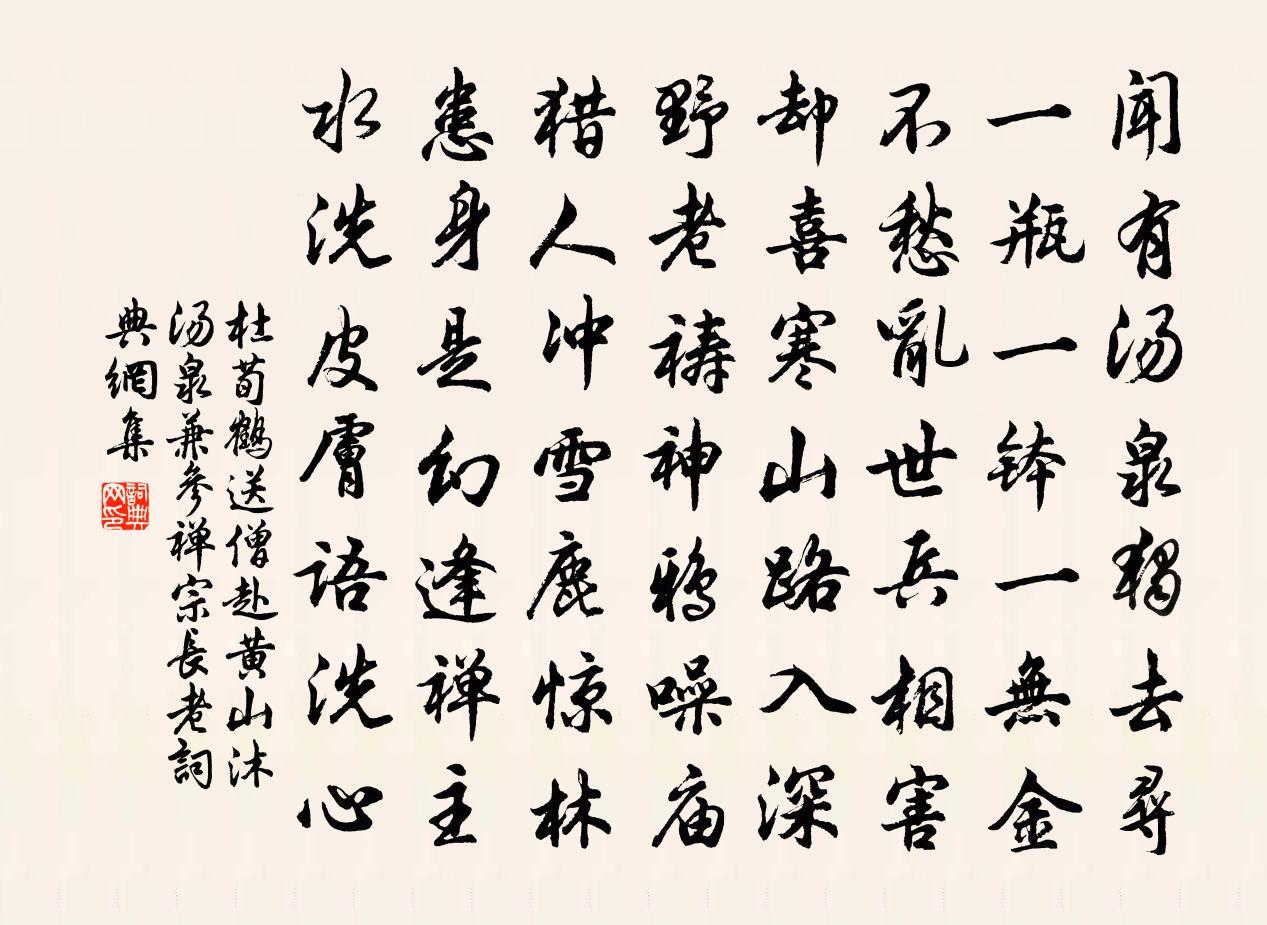 闻有汤泉独去寻
一瓶一钵一無金
不愁亂世兵相害
却喜寒山路入深
野老祷神鸦噪庙
猎人冲雪鹿惊林
患身是幻逢禅主
水洗皮膚语洗心
杜荀鶴送僧赴黄山沐
汤泉兼参禅宗長老詞
典網集
詞典网印